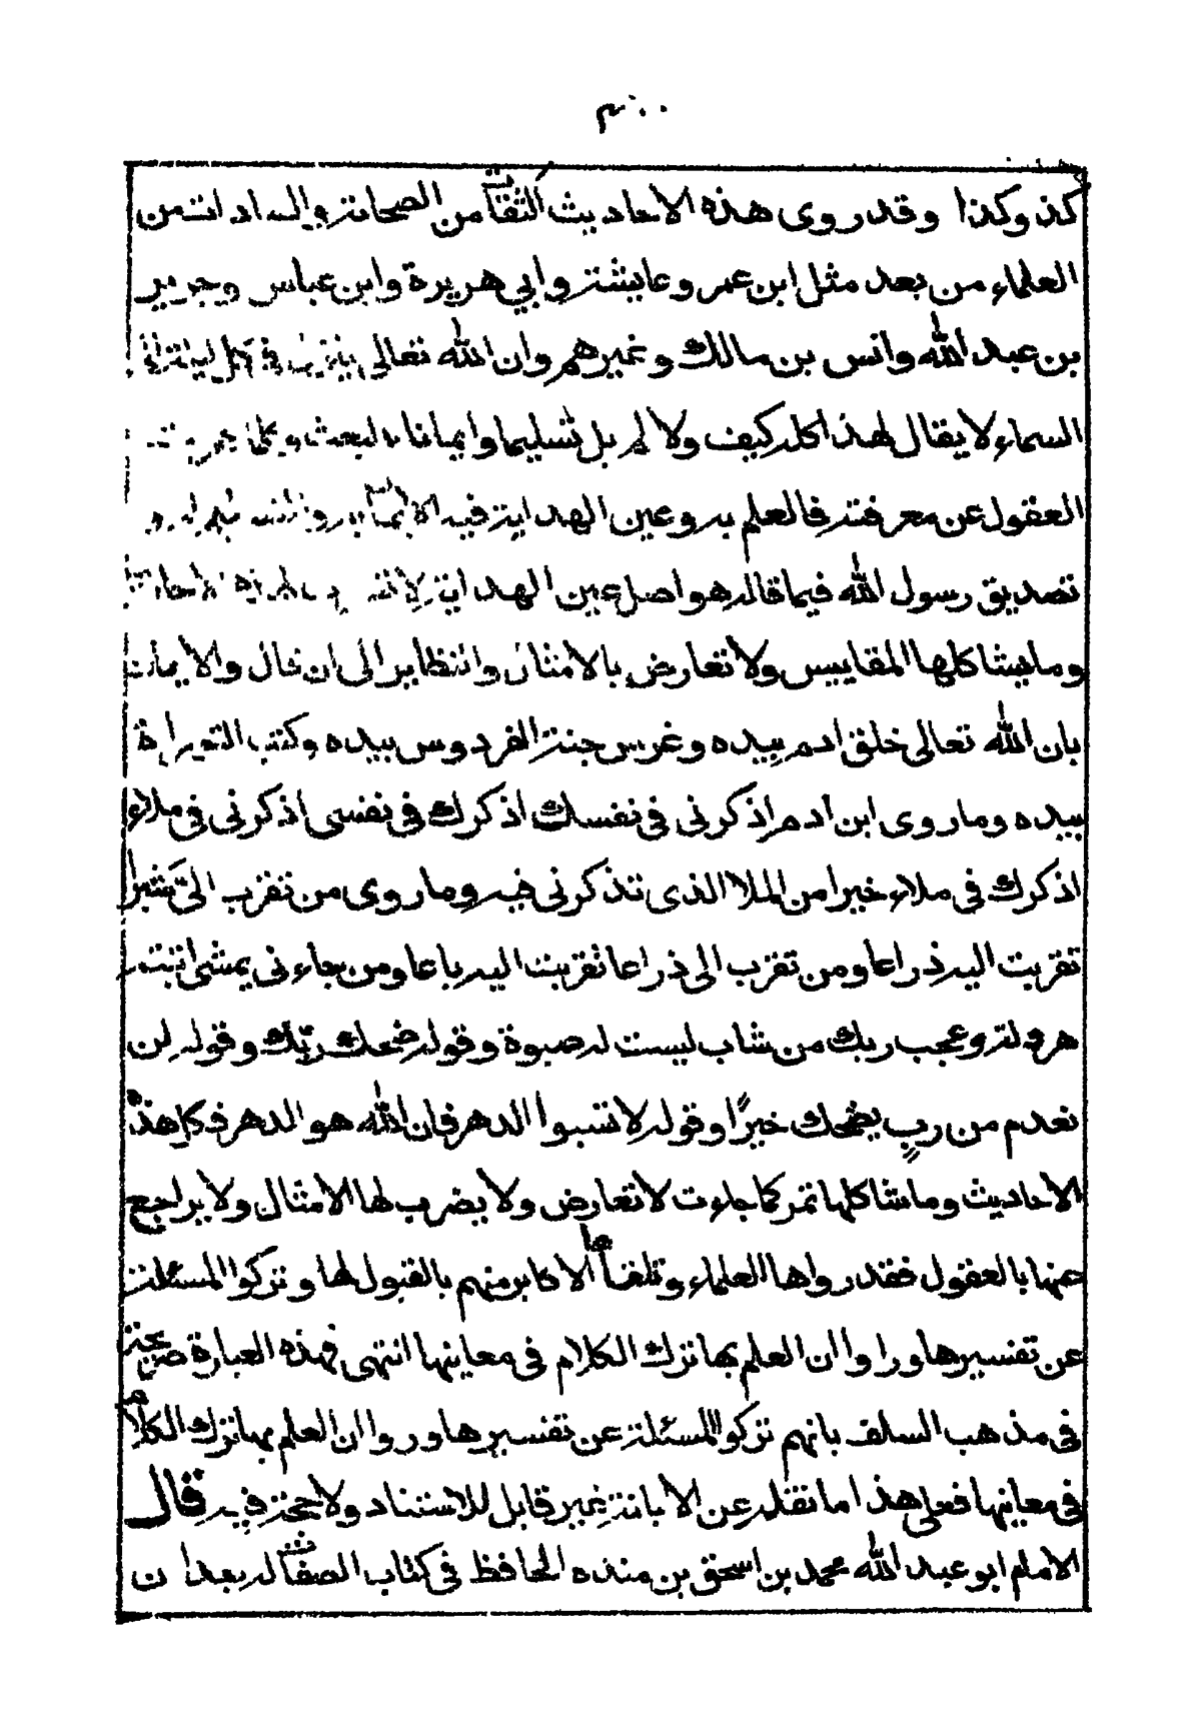 ٣٠٠
كذ وكذا وقد روى هذه الاحاديث الثقات من الصحابة والسادات من
العلماء من بعد مثل ابن عمر وعايشة وابي هريرة وابن عباس وجرير
بن عبد الله وانس بن مالك وغيرهم وان الله تعالى ينزل في كل ليلة الى
السماء لا يقال لهذا كله كيف ولا لم بل تسليما وايمانا بالبعث وكلما
العقول عن معرفته فالعلم به وعين الهداية فيه الايمان به
تصديق رسول الله فيما قاله هو اصل عين الهداية لا
وما يشاكلها المقاييس ولا تعارض بالامثال والنظاير الى ان قال والايمان
بان الله تعالى خلق ادم بيده وغرس جنة الفردوس بيده وكتب التوراة
بيده وما روى ابن ادم اذكرنى فى نفسك اذكرك فى نفسى اذكرنى فى ملاء
اذكرك فى ملاء خيرا من الملا الذى تذكرنى فيه وما روى من تقرب الىّ شبرا
تقربت اليه ذراعا ومن تقرب الى ذراعا تقربت اليه باعا ومن جاءنى يمشى اتيته
هرولة وعجب ربك من شاب ليست له صبوة وقوله ضحك ربّك وقوله لن
نعدم من ربٍ يضحك خيرًا وقوله لا تسبوا الدهر فان الله هو الدهر فكل هذه
الاحاديث وما شاكلها تمر كما جاءت لا تعارض ولا يضرب لها الامثال ولا يراجع
منها بالعقول فقد رواها العلماء وتلقاها الاكابر منهم بالقبول لها وتركوا المسئلة
عن تفسيرها وراوا ان العلم بها ترك الكلام فى معاينها انتهى فهذه العبارة صريحة
فى مذهب السلف بانهم تركوا المسئلة عن تفسيرها ورووا ان العلم بها ترك الكلام
فى معاينها فعلى هذا ما نقله عن الابانة غير قابل للاستناد ولا حجة فيه قال
الامام ابو عبد الله محمد بن اسحق بن منده الحافظ فى كتاب الصفات له بعد ان